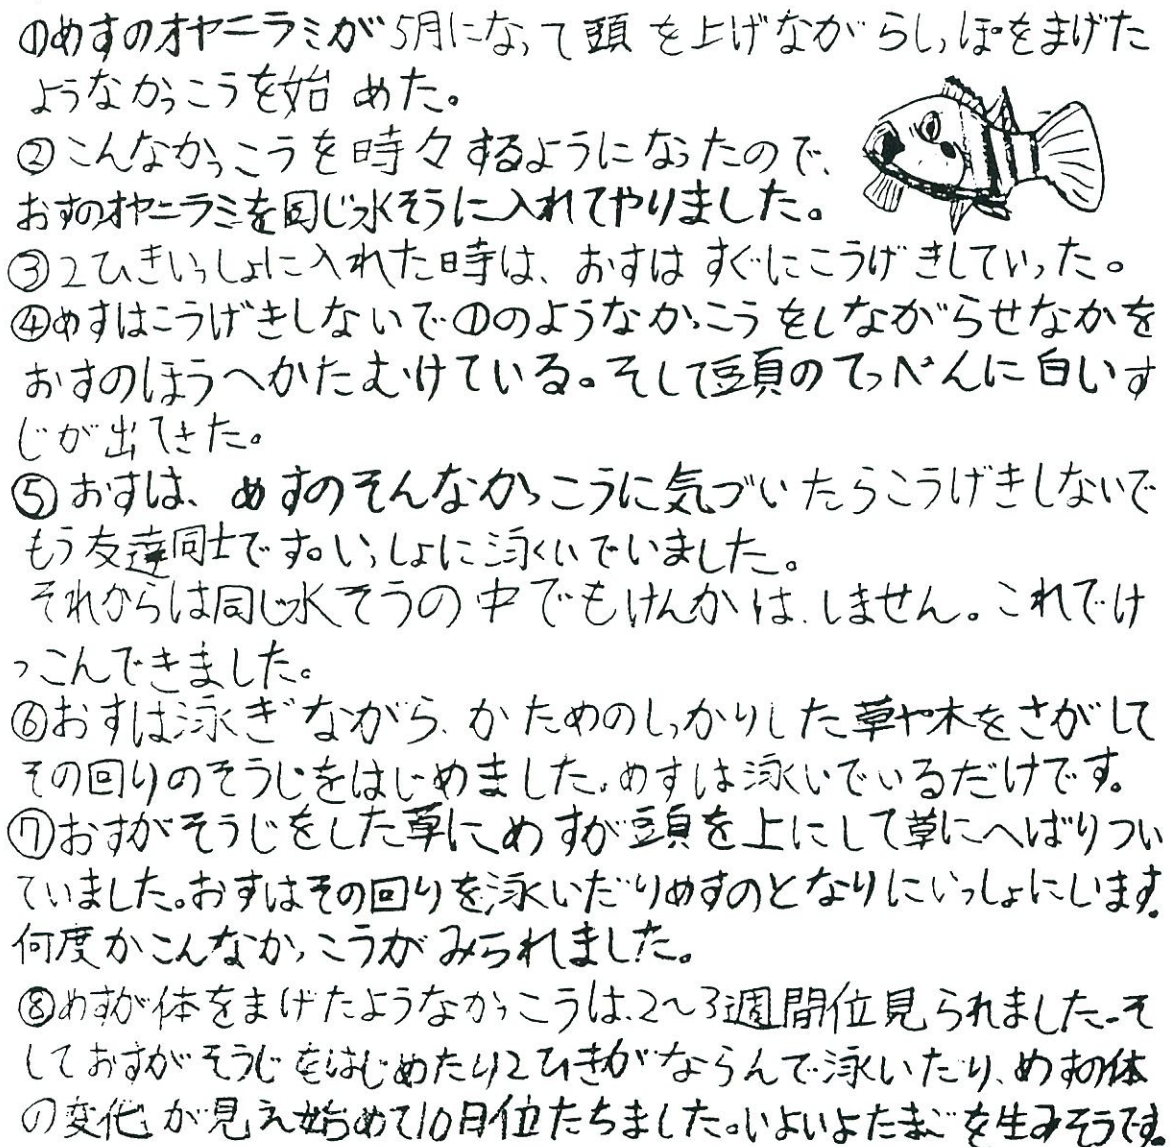 ①めすのオヤニラミが5月になって頭を上げながらしっぽをまげた
ようなかっこうを始めた。
②こんなかっこうを時々するようになったので、
おすのオヤニラミを同じ水そうに入れてやりました。
③2ひきいっしょに入れた時は、おすはすぐにこうげきしていった。
④めすはこうげきしないで①のようなかっこうをしながらせなかを
おすのほうへかたむけている。そして頭のてっぺんに白いす
じが出てきた。
⑤おすは、めすのそんなかっこうに気づいたらこうげきしないで
もう友達同士です。いっしょに泳いでいました。
それからは同じ水そうの中でもけんかは、しません。これでけ
っこんできました。
⑥おすは泳ぎながら、かためのしっかりした草や木をさがして
その回りのそうじをはじめました。めすは泳いでいるだけです。
⑦おすがそうじをした草に、めすが頭を上にして草にへばりつい
ていました。おすはその回りを泳いだりめすのとなりにいっしょにします。
何度かこんなかっこうがみられました。
⑧めすが体をまげたようなかっこうは、2〜3週間位見られました。そ
しておすがそうじをはじめたり2ひきがならんで泳いだり、めすの体
の変化が見え始めて10日位たちました。いよいよたまごを生みそうです